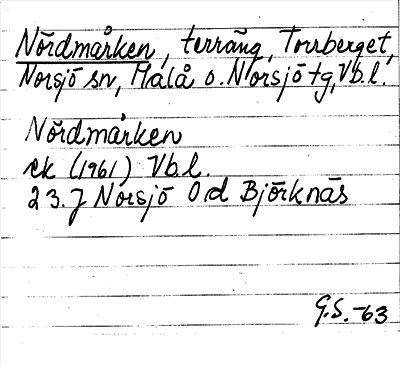 Nördmarken, terräng, Torrberget,
Norsjö sn, Malå o. Norsjö tg, Vb.l.
Nördmarken
ek (1961) Vb.l.
23.J Norsjö Od Björknäs
G.S. -63